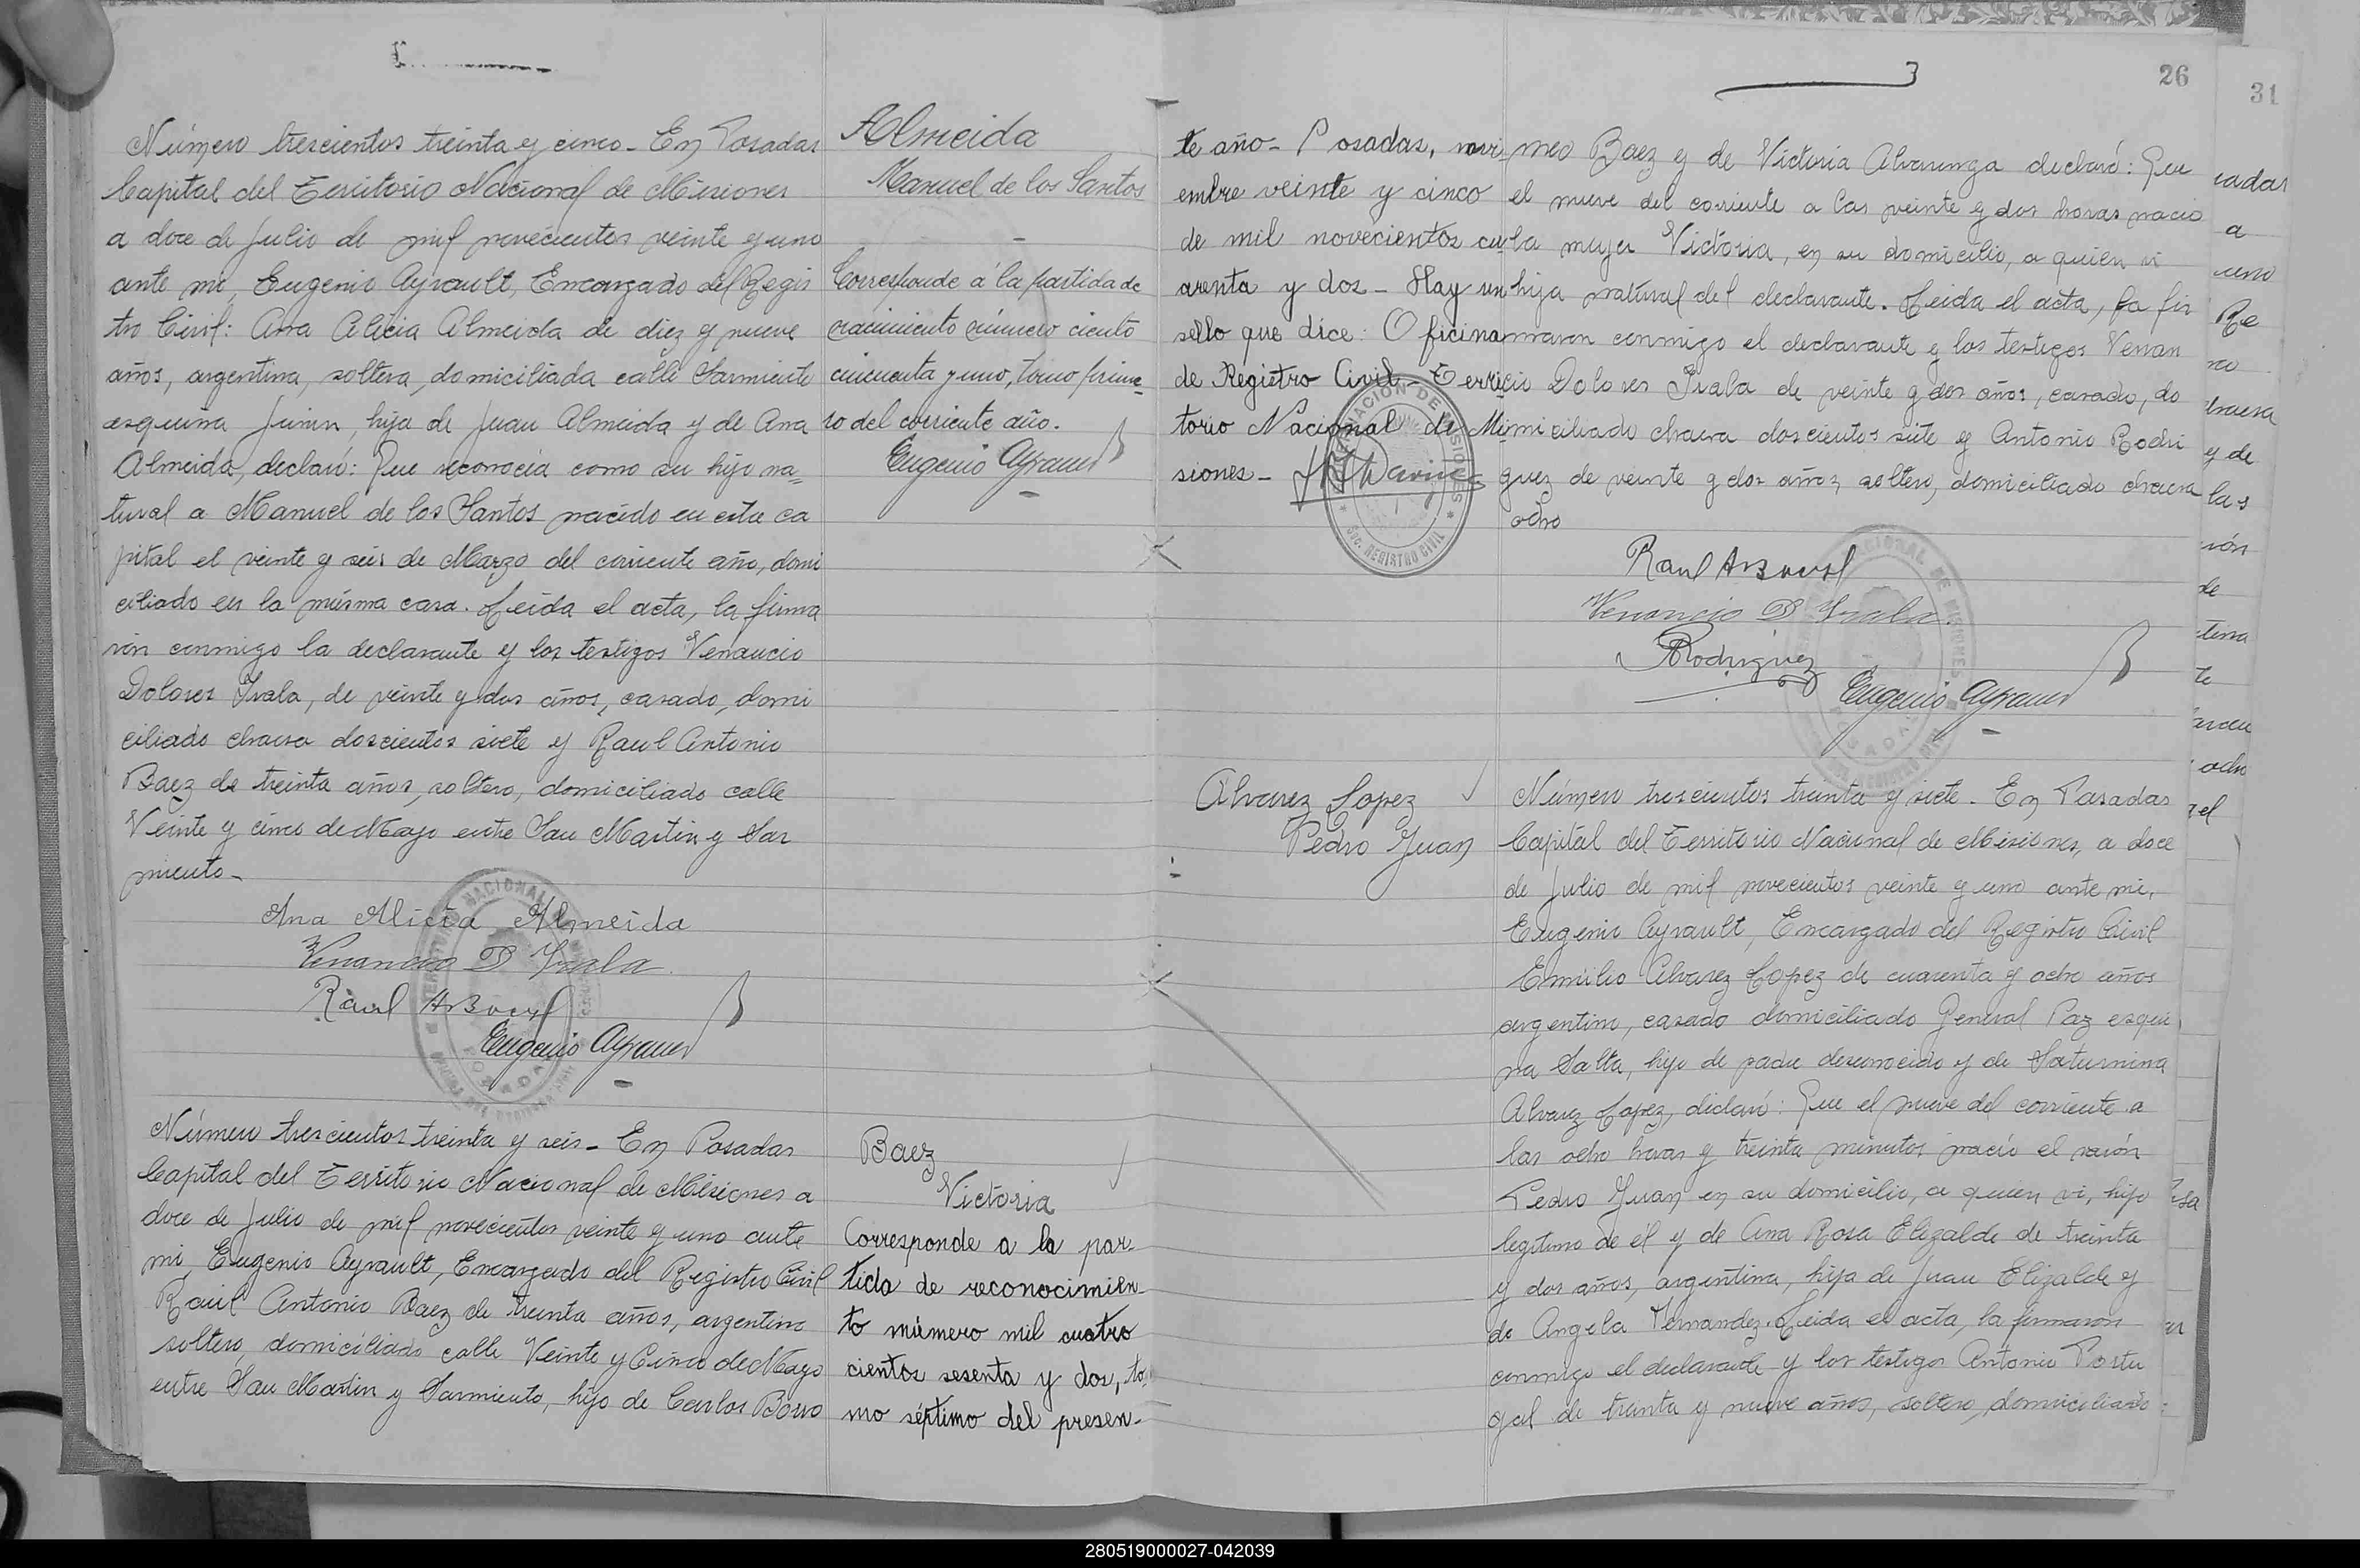 Número trescientos treinta y cinco - En Posadas
Capital del Territorio Nacional de Misiones
a doce de Julio de mil novecientos veinte y uno
ante mi, Eugenio Ayrault, Encargado del Regis
tro Civil: Ana Alicia Almeida de diez y nueve
años, argentina, soltera, domiciliada calle Sarmiento
esquina Junin, hija de Juan Almeida y de Ana
Almeida, declaró: Que reconocia como su hijo na=
tural a Manuel de los Santos nacido en esta ca
pital el veinte y seis de Marzo del corriente año, domi
ciliado en la misma casa. Leida el acta, la firma
ron conmigo la declarante y los testigos Venancio
Dolores Irala, de veinte y dos años, casado, domi
ciliado chacra doscientos siete y Raul Antonio
Baez de treinta años, soltero, domiciliado calle
Veinte y cinco de Mayo entre San Martin y Sar
miento -
Ana Alicia Almeida
Venancio D Irala
Raul A Baez
Eugenio Ayrault
Almeida
Manuel de los Santos
Corresponde á la partida de
nacimiento número ciento
cincuenta y uno, tomo prime=
ro del corriente año.
Eugenio Ayrault
Número trescientos treinta y seis - En Posadas
Capital del Territorio Nacional de Misiones a
doce de Julio de mil novecientos veinte y uno ante
mi, Eugenio Ayrault, Encargado del Registro Civil
Raúl Antonio Baez de treinta años, argentino
soltero, domiciliado calle Veinte y Cinco de Mayo
entre San Martin y Sarmiento, hijo de Carlos Borro
Baez
Victoria
Corresponde a la par-
tida de reconocimien-
to número mil cuatro
cientos sesenta y dos, to-
mo séptimo del presen-
26
31
te año - Posadas, novi-
embre veinte y cinco
de mil novecientos cu-
arenta y dos - Hay un
sello que dice: Oficina
de Registro Civil - Terri-
torio Nacional de Mi-
siones -
GOBERNACIÓN DE MISIONES
SEC. REGISTRO CIVIL
meo Baez y de Victoria Alvarenga declaró: Que
el nueve del corriente a las veinte y dos horas nacio
la mujer Victoria, en su domicilio, a quien vi
hija natural del declarante. Leida el acta, la fir
maron conmigo el declarante y los testigos Venan
cio Dolores Irala de veinte y dos años, casado, do
miciliado chacra doscientos siete y Antonio Rodri
guez de veinte y dos años, soltero, domiciliado chacra
ocho
Raul A Baez
Venancio D Irala
A Rodriguez
Eugenio Ayrault
Alvarez Lopez
Pedro Juan
Número trescientos treinta y siete - En Posadas
Capital del Territorio Nacional de Misiones, a doce
de Julio de mil novecientos veinte y uno ante mi,
Eugenio Ayrault, Encargado del Registro Civil
Emilio Alvarez Lopez de cuarenta y ocho años
argentino, casado domiciliado General Paz esqui
na Salta, hijo de padre desconocido y de Saturnina
Alvarez Lopez, declaró: Que el nueve del corriente a
las ocho horas y treinta minutos nacio el varón
Pedro Juan en su domicilio, a quien vi, hijo
legitimo de él y de Ana Rosa Elizalde de treinta
y dos años, argentina, hija de Juan Elizalde y
de Angela Fernandez. Leida el acta, la firmaron
conmigo el declarante y los testigos Antonio Portu
gal de treinta y nueve años, soltero, domiciliado
280519000027-042039